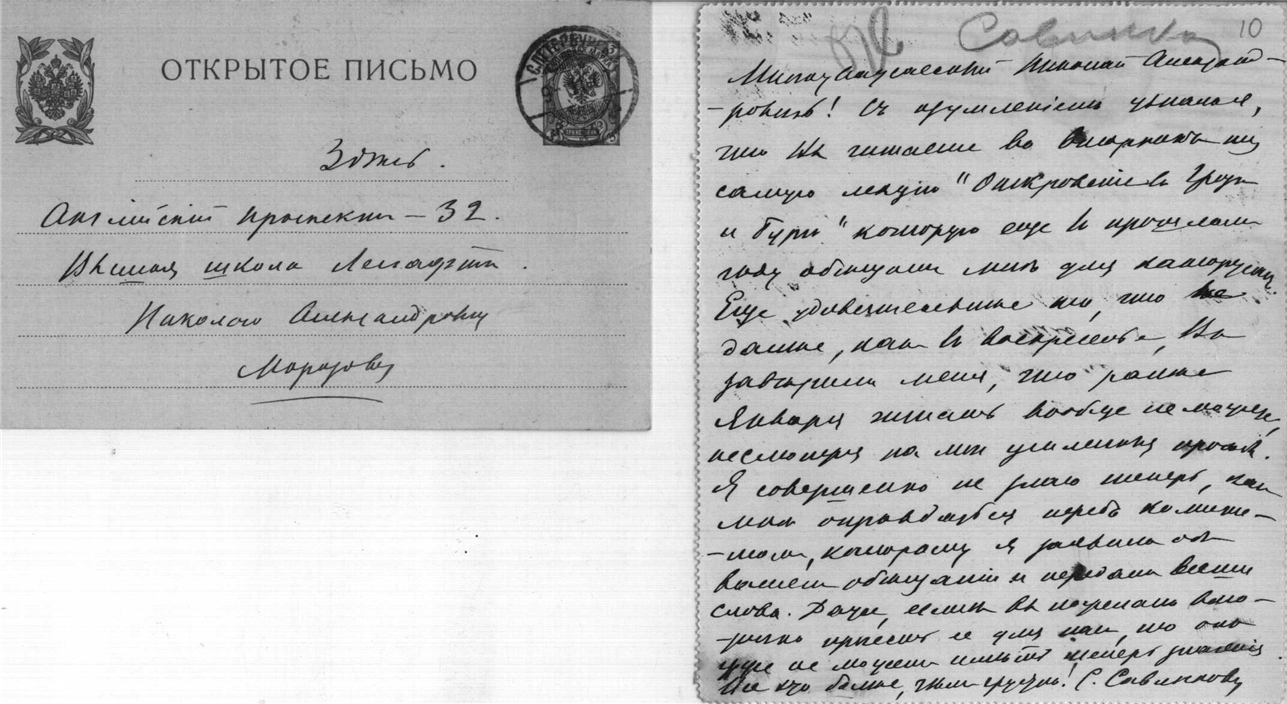 ОТКРЫТОЕ ПИСЬМО
С.ПЕТЕРБУРГЪ
Здѣсь.
Английскій проспектъ – 32.
Высшая школа Лесгафта.
Николаю Александровичу
Морозову
10
Савинкова
Многоуважаемый Николай Александ-
-ровичъ! Съ изумленіемъ узнала я,
что Вы читаете во вторникъ ту
самую лекцію "Откровеніе въ Грозѣ
и бурѣ" которую еще въ прошломъ
году обѣщали мнѣ для
Еще удивительнѣе то, что не
далѣе, какъ въ воскресенье, Вы
завѣрили меня, что раньше
Января читать вообще не можете,
несмотря на мои усиленныя просьбы.
Я совершенно не знаю теперь, какъ
мнѣ оправдаться передъ комите-
-томъ, которому я заявила объ
вашемъ обѣщаніи и передала Ваши
слова. Даже, если бы Вы пожелали вто-
-рично прочесть ее для насъ, то она
уже не можетъ имѣть теперь значенія
Мнѣ это болѣе, чѣмъ грустно! С. Савинкова